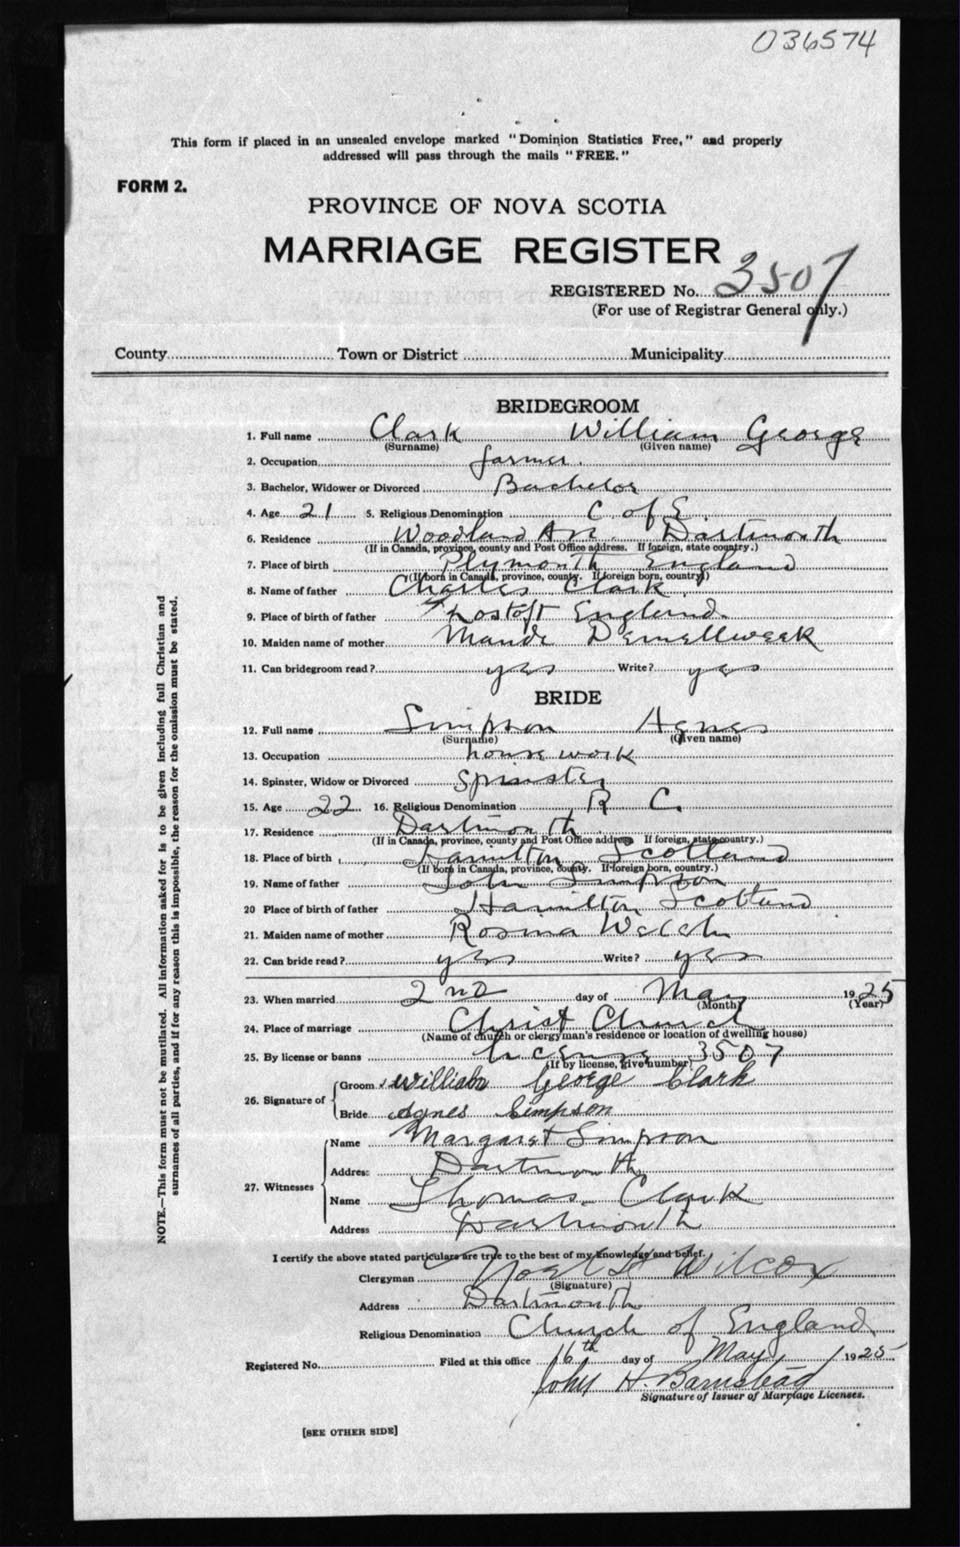 036574
This form if placed in an unsealed envelope marked "Dominion Statistics Free," and properly
addressed will pass through the mails "FREE."
FORM 2.
PROVINCE OF NOVA SCOTIA
MARRIAGE REGISTER
REGISTERED No. 3507
(For use of Registrar General only.)
County Town or District Municipality
BRIDEGROOM
1. Full name Clark William George
(Surname) (Given name)
2. Occupation farmer.
3. Bachelor, Widower or Divorced Bachelor
4. Age 21 5. Religious Denomination C. of E.
6. Residence Woodland Ave. Dartmouth
(If in Canada, province, county and Post Office address. If foreign, state country.)
7. Place of birth Plymouth England
(If born in Canada, province, county. If foreign born, country)
8. Name of father Charles Clark.
9. Place of birth of father England.
10. Maiden name of mother Maude
11. Can bridegroom read? yes Write? yes
BRIDE
12. Full name Simpson Agnes
(Surname) (Given name)
13. Occupation house work
14. Spinster, Widow or Divorced Spinster
15. Age 22 16. Religious Denomination R C.
17. Residence Dartmouth
(If in Canada, province, county and Post Office address If foreign, state country.)
18. Place of birth Hamilton Scotland
(If born in Canada, province, county. If foreign born, country.)
19. Name of father John Simpson
20 Place of birth of father Hamilton Scotland
21. Maiden name of mother Rosina Welch
22. Can bride read? yes Write? yes
23. When married 2nd day of May 1925
(Month) (Year)
24. Place of marriage Christ Church
(Name of church or clergyman's residence or location of dwelling house)
25. By license or banns license 3507
(If by license, give number)
26. Signature of Groom William George Clark
Bride Agnes Simpson
27. Witnesses
Name Margaret Simpson
Address Dartmouth
Name Thomas Clark
Address Dartmouth
I certify the above stated particulars are true to the best of my knowledge and belief.
Clergyman Noel H Wilcox
(Signature)
Address Dartmouth
Religious Denomination Church of England
Registered No. Filed at this office 16th day of May 1925
John H. Barnstead
Signature of Issuer of Marriage Licenses.
[SEE OTHER SIDE]
NOTE.—This form must not be mutilated. All information asked for is to be given including full Christian and
surnames of all parties, and if for any reason this is impossible, the reason for the omission must be stated.